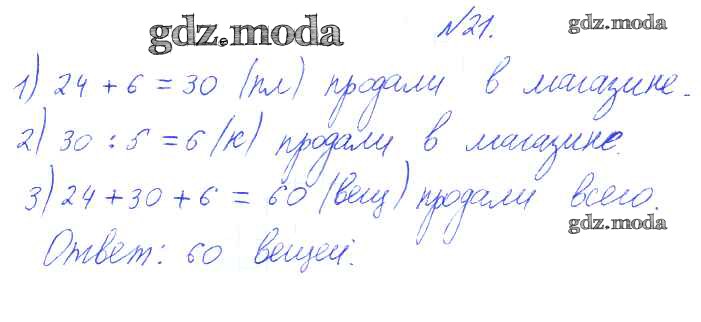 gdz.moda
№21.
gdz.moda
1) 24 + 6 = 30 (пл) продали в магазине.
2) 30 : 5 = 6 (к) продали в магазине.
3) 24 + 30 + 6 = 60 (вещ) продали всего.
gdz.moda
Ответ: 60 вещей.